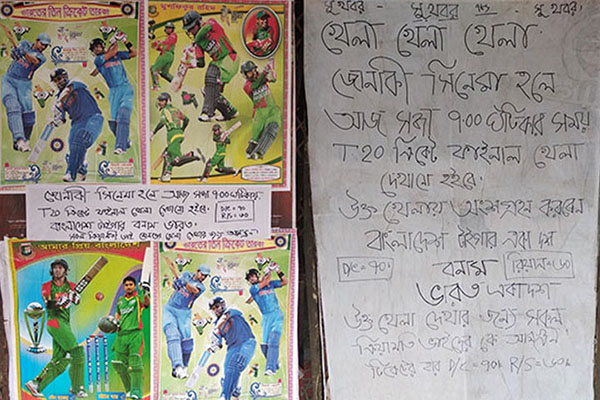 ভারতের তিন ক্রিকেট তারকা
মুশফিকুর রহিম
জোনাকী সিনেমা হলে আজ সন্ধা ৭:০০ ঘটিকায়
T20 ক্রিকেট ফাইনাল খেলা দেখানো হইবে।
D/C = ৭০
R/S = ৬০
বাংলাদেশ টাইগার বনাম ভারত।
আমার প্রিয় বাংলাদেশ
ভারতের তিন ক্রিকেট তারকা
সু খবর - সু খবর সু খবর।
খেলা খেলা খেলা
জোনাকী সিনেমা হলে
আজ সন্ধা ৭:০০ ঘটিকার সময়
T20 ক্রিকেট ফাইনাল খেলা
দেখানো হইবে।
উক্ত খেলায় অংশগ্রহন করবেন
বাংলাদেশ টাইগার একা দশ
D/C = ৭০
বনাম
রিয়াল = ৬০
ভারত একাদশ
উক্ত খেলা দেখার জন্যে সকল
ভাইদের কে
টিকেটের হার D/C = ৭০ R/S = ৬০